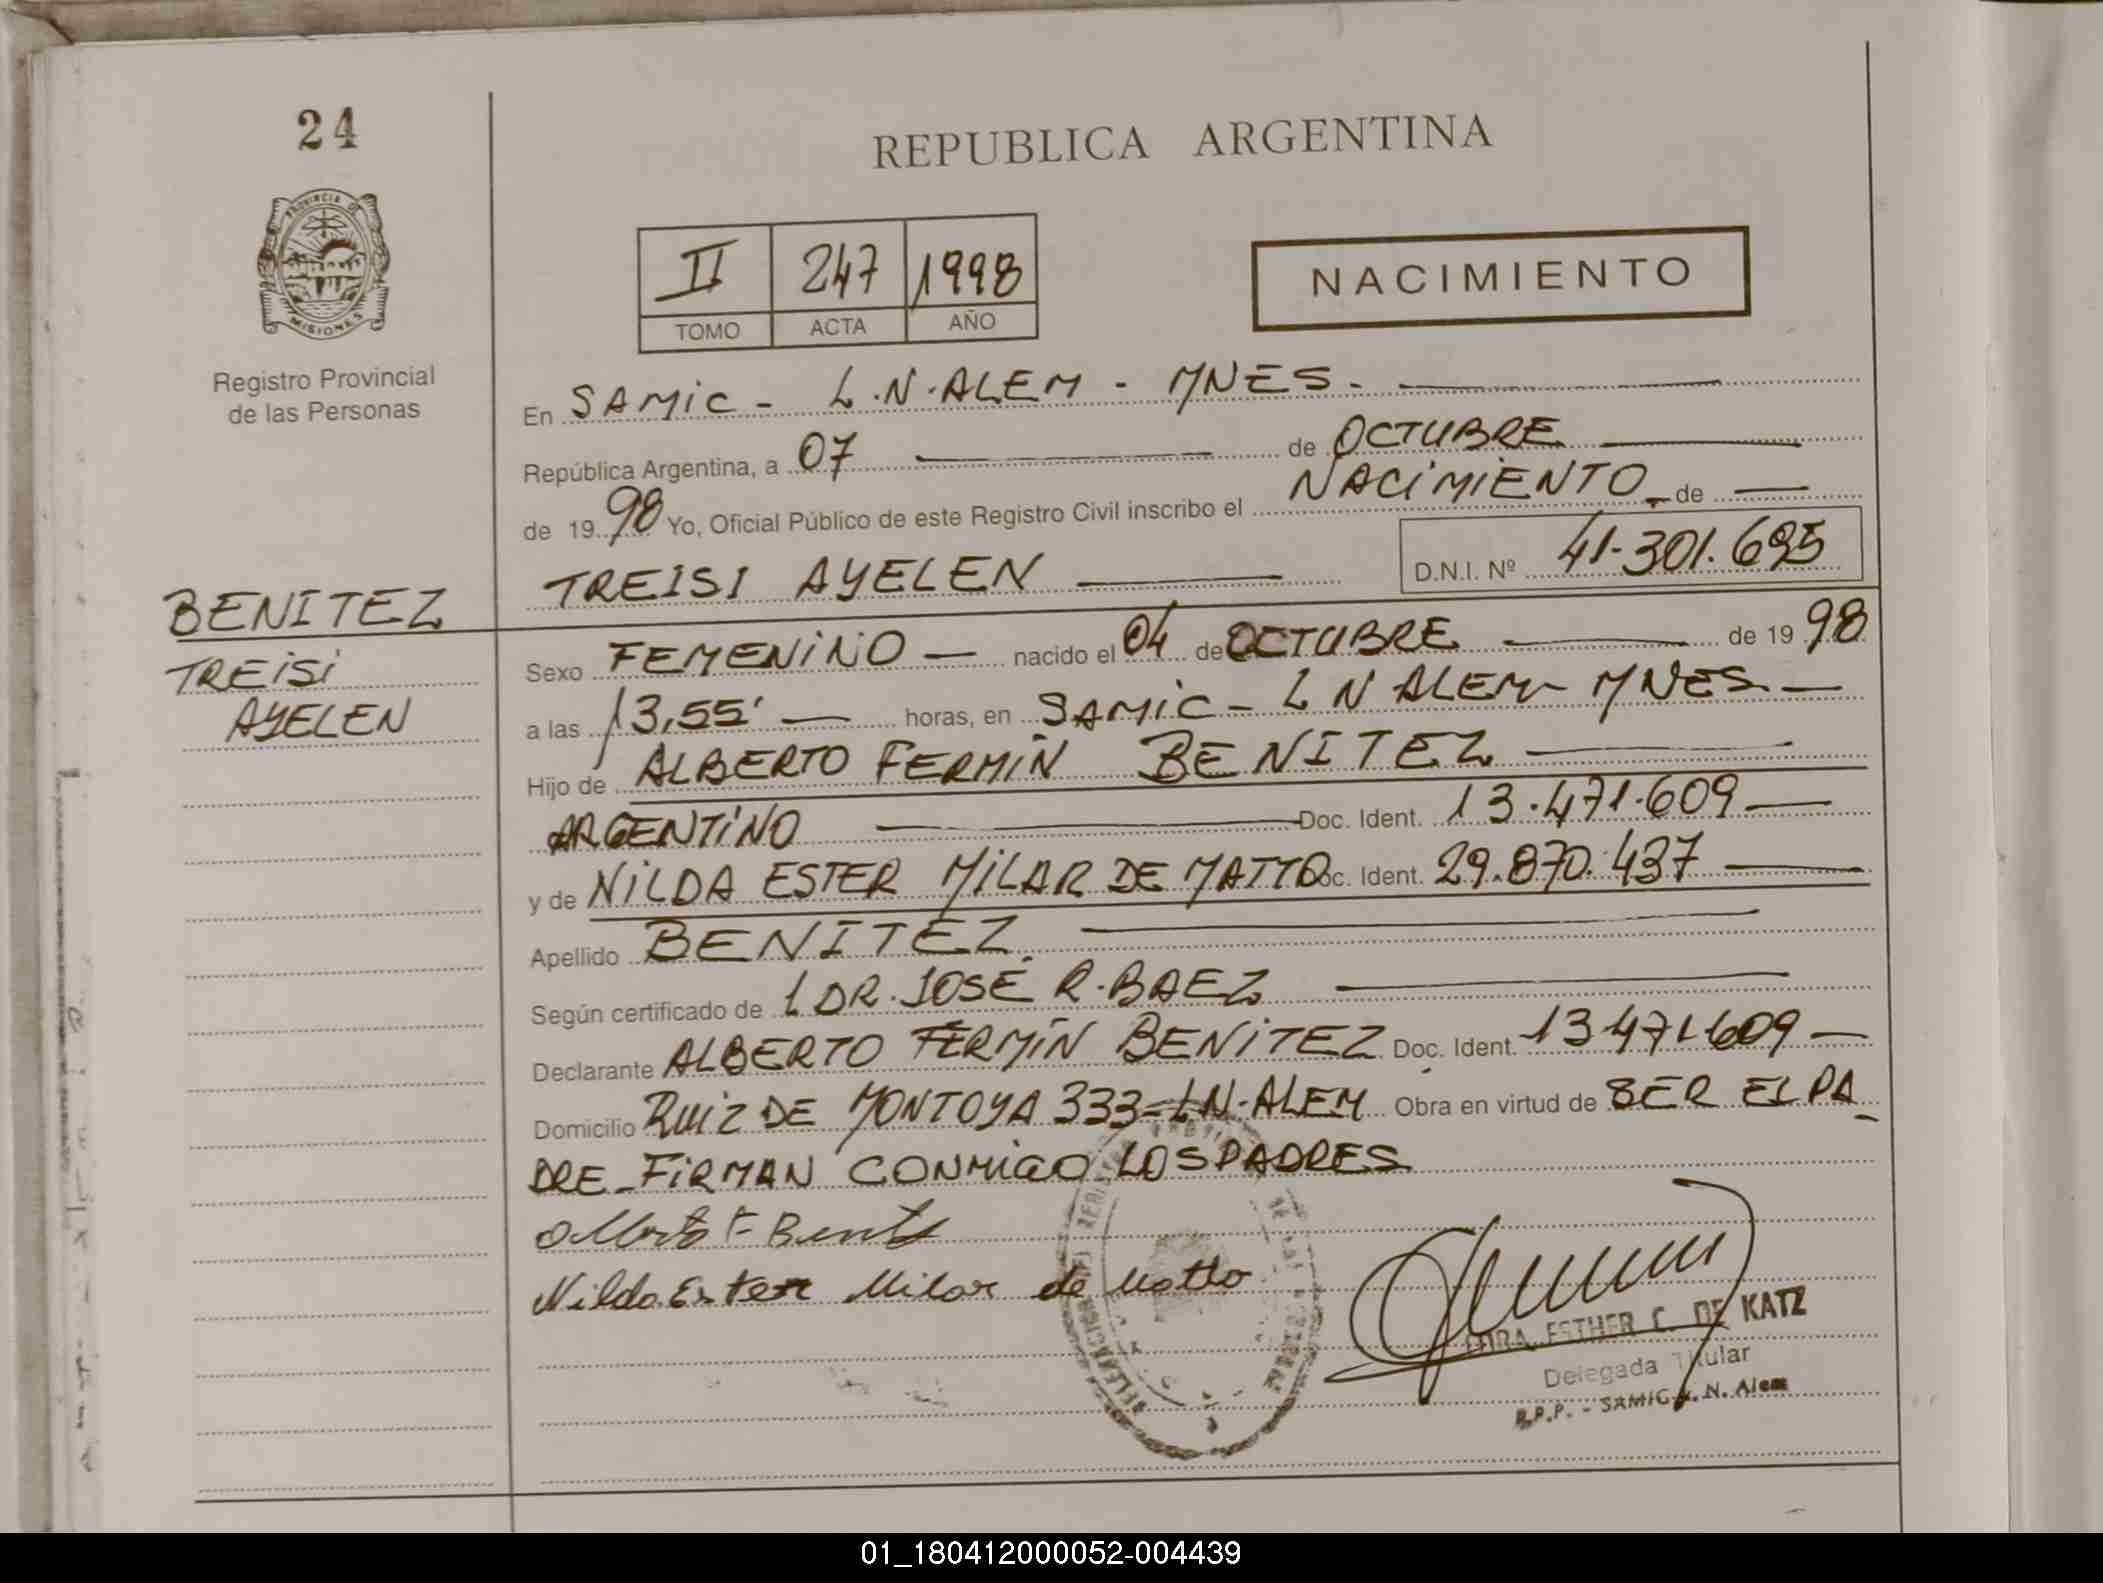 24
REPUBLICA ARGENTINA
PROVINCIA DE
MISIONES
Registro Provincial
de las Personas
II 247 1998
TOMO ACTA AÑO
NACIMIENTO
En SAMIC - L.N. ALEM - MNES.
República Argentina, a 07 de OCTUBRE
de 1998 Yo, Oficial Público de este Registro Civil inscribo el NACIMIENTO de
TREISI AYELEN D.N.I. Nº 41.301.695
BENITEZ
TREISI
AYELEN
Sexo FEMENINO nacido el 04 de OCTUBRE de 1998
a las 13,55' horas, en SAMIC - L N ALEM - MNES
Hijo de ALBERTO FERMÍN BENITEZ
ARGENTINO Doc. Ident. 13.471.609
y de NILDA ESTER MILAR DE MATTO Doc. Ident. 29.870.437
Apellido BENITEZ
Según certificado de L DR. JOSÉ R. BAEZ
Declarante ALBERTO FERMÍN BENITEZ Doc. Ident. 13.471.609
Domicilio RUIZ DE MONTOYA 333 - LN. ALEM Obra en virtud de SER EL PA-
DRE - FIRMAN CONMIGO LOS PADRES
Alberto F Benitez
Nilda Ester Milar de Matto
ESTHER C. DE KATZ
Delegada Titular
R.P.P. - SAMIC L. N. Alem
01_180412000052-004439